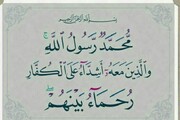 بسم الله الرحمن الرحيم
مُحَمَّدٌ رَسُولُ اللَّهِ
وَالَّذِينَ مَعَهُ أَشِدَّاءُ عَلَى الْكُفَّارِ
رُحَمَاءُ بَيْنَهُمْ